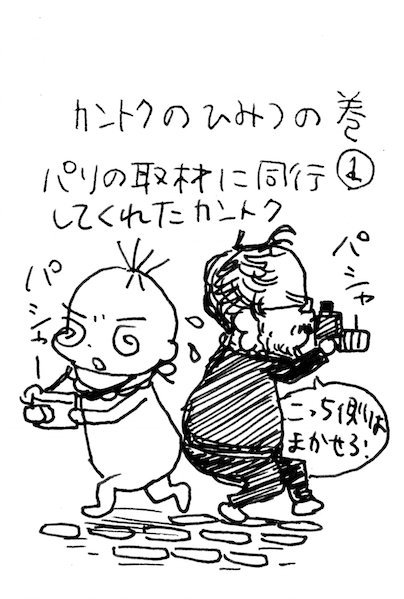 カントクのひみつの巻
①
パリの取材に同行
してくれたカントク
パシャー
パシャー
こっち側は
まかせろ!